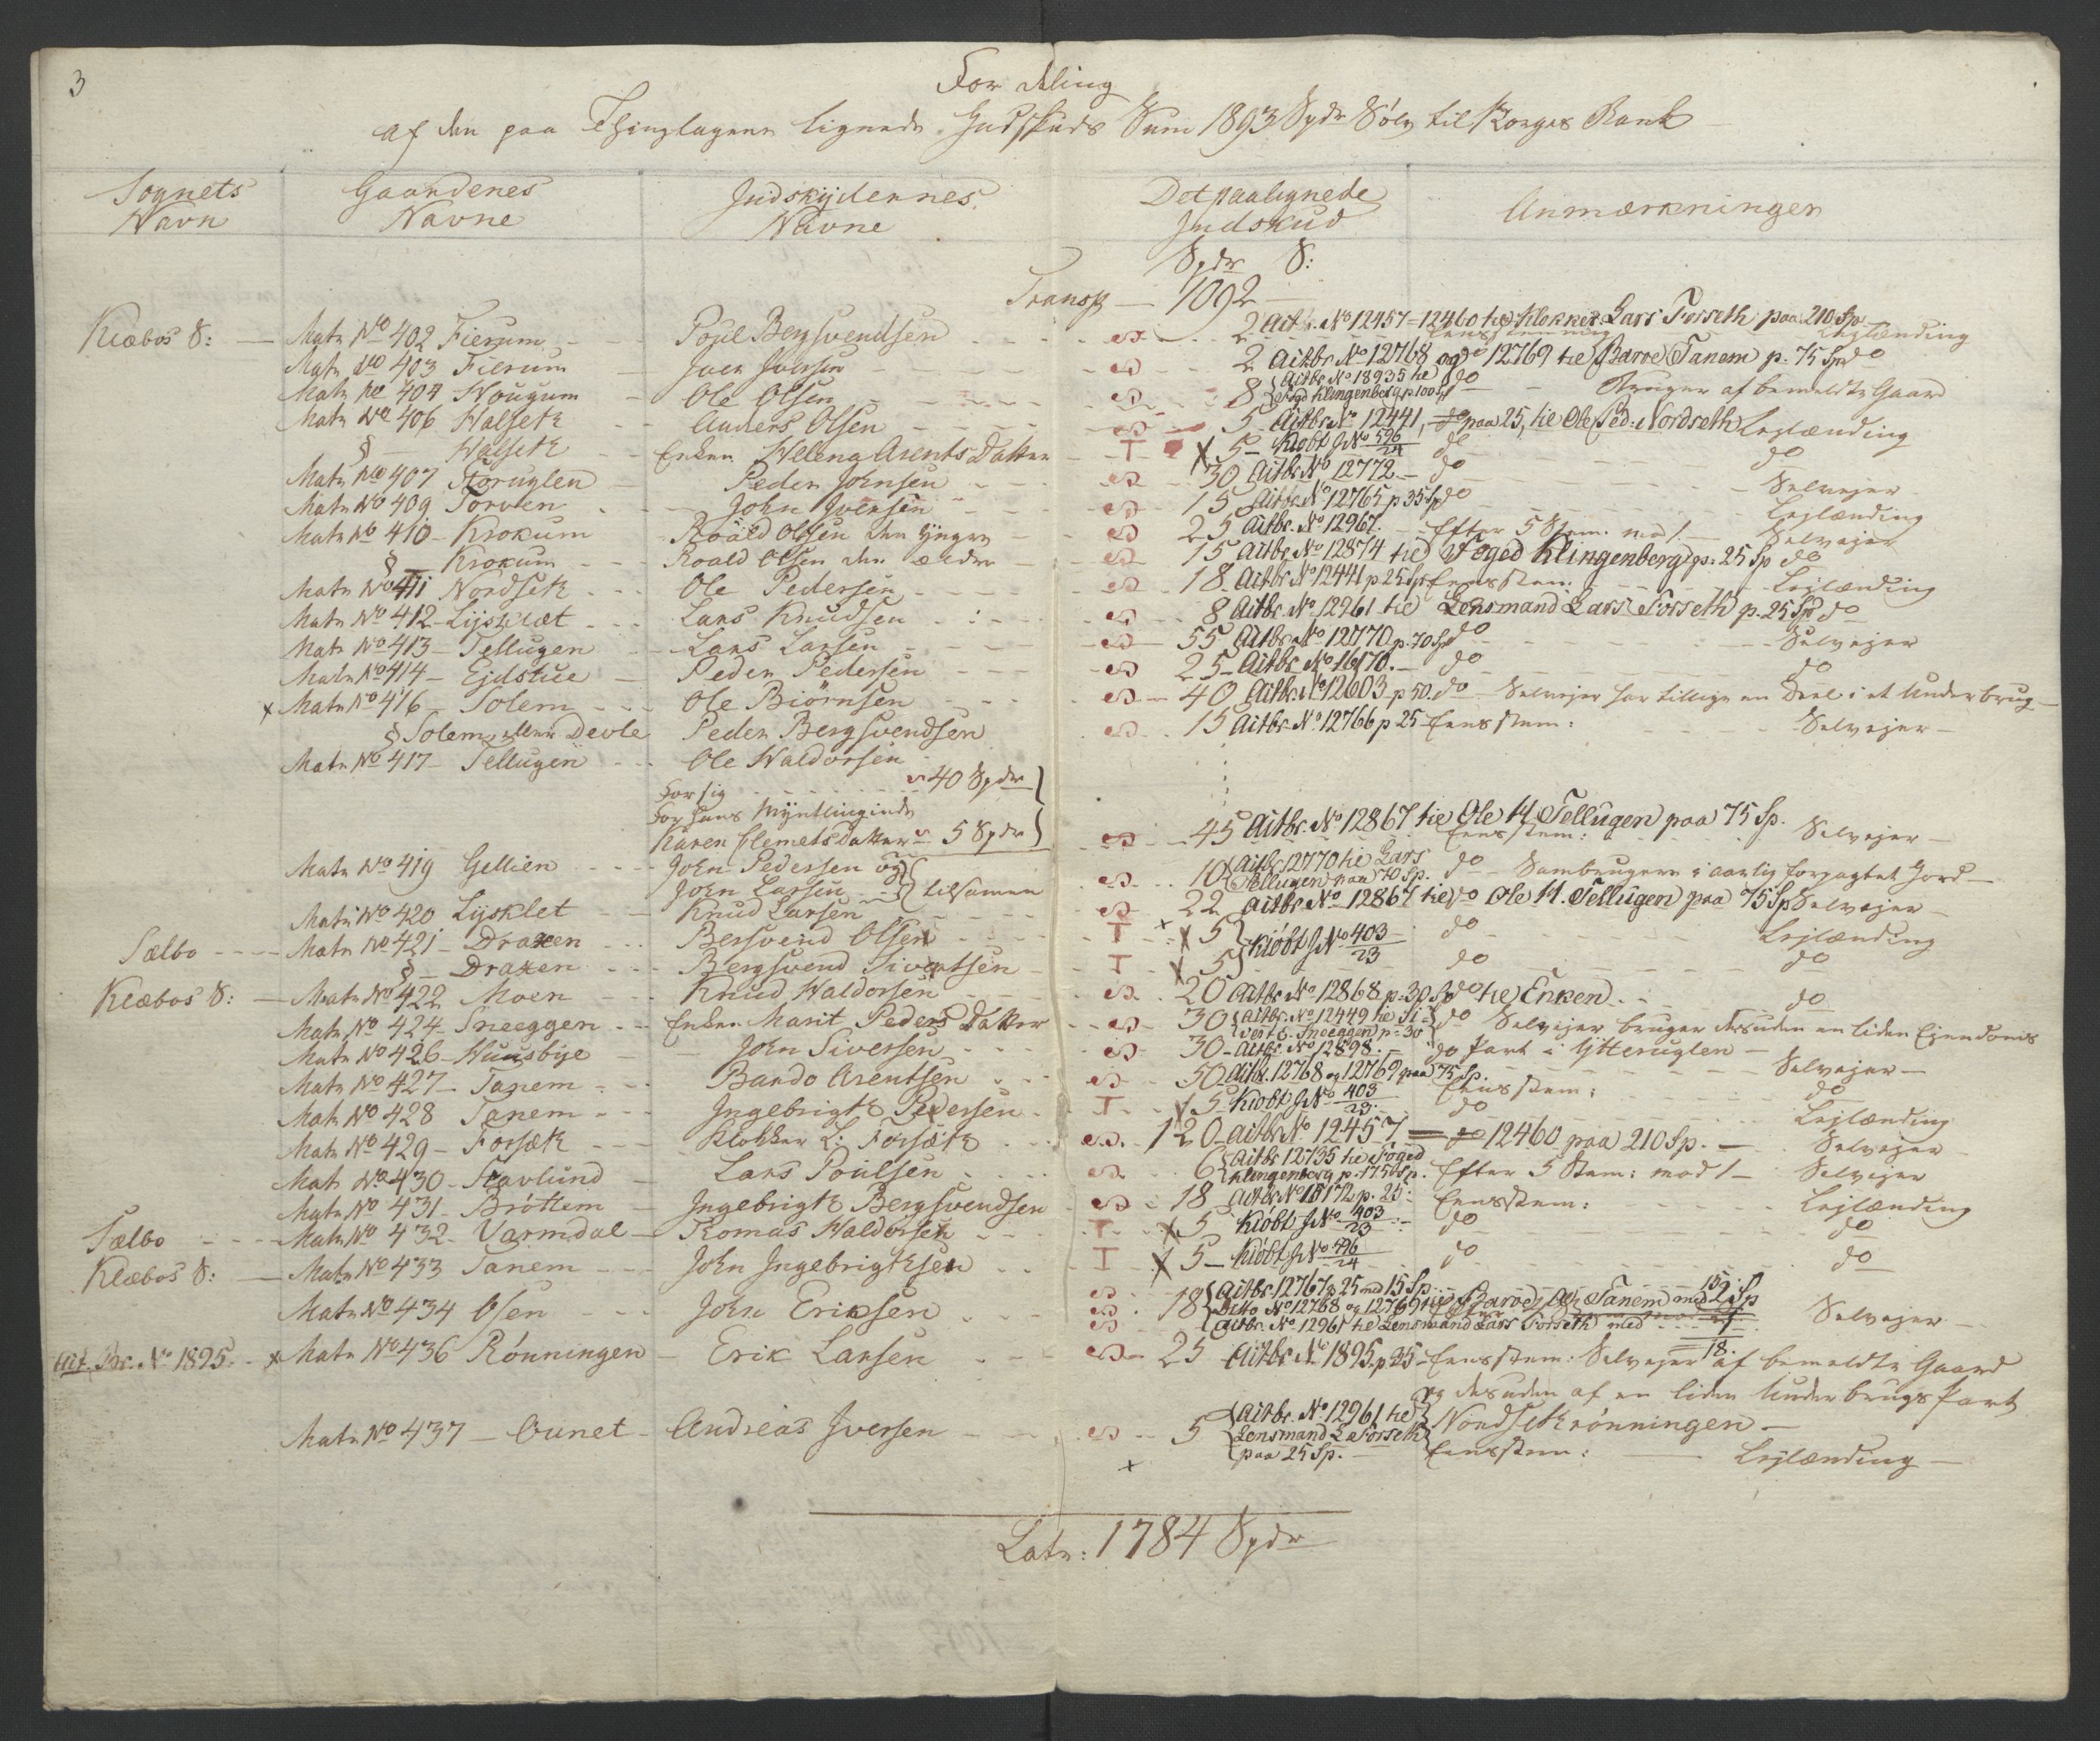 3
Fordeling
af den paa Thinglagene lignede Indskuds Sum 1893 Spdr Sølv til Norges Bank
Sognets Navn
Gaardenes Navne
Indskydernes Navne
Det paalignede Indskud
Anmærkninger
Spdr S:
Transp — 1092
Klæboe S: — Matr No 402 Fierum - Poul Bergsvendsen - 2 Actbr. No 12457 = 12460 til Klokker Lars Forseth paa 210 Sp. Eensstemmig Lejlænding
Matr No 403 Fierum - Iver Iversen - 2 Actbr No 12768 og do 12769 til Baroe Tanem p. 75 Sp do
Matr No 404 Hougum - Ole Olsen - 8 {Actbr No 18935 til Foged Klingenberg p 100 Sp do - Bruger af bemeldte Gaard
Matr No 406 Halseth - Anders Olsen - 5 - Actbr No 12441, do paa 25, til Ole Ped: Nordseth Lejlænding
§ — Halseth - Enken Helena Arents Datter - T x 5 - Kiøbt J No 596/24 do do
Matr No 407 Storuglen - Peder Johnsen - 30 Actbr No 12772 - do - Selvejer
Matr No 409 Torven - John Iversen - 15 Actbr No 12765 p 35 Sp do - Lejlænding
Matr No 410 - Krokum - Roald Olsen den Yngre - 25 Actbr. No 12967. - Efter 5 Stem: mod 1. - Selvejer
§ — Krokum - Roald Olsen den ældre - 15 Actbr No 12874 til Foged Klingenberg p: 25 Sp do
Matr No 411 Nordseth - Ole Pedersen - 18 Actbr No 12441 p 25 Sp Eensstem: - Lejlænding
Matr No 412 - Lysklæt - Lars Knudsen - 8 Actbr No 12961 til Lensmand Lars Forseth p. 25 Sp do
Matr No 413 - Tellugen - Lars Larsen - 55 Actbr No 12770 p. 70 Sp do - Selvejer
Matr No 414 - Ejdstue - Peder Pedersen - 25 - Actbr No 16170. - do - do
x Matr No 416 - Solem - Ole Biørnsen - 40 Actbr. No 12603 p 50. do - Selvejer har tillige en Deel i et Underbrug -
§ Solem, eller Devle Peder Bergsvendsen - 15 Actbr No 12766 p 25 - Eensstem: - Selvejer -
Matr No 417 - Tellugen - Ole Haldorsen
For sig - 40 Spdr }
For hans Myntlinginde
Karen Clemets Datter - 5 Spdr } - 45 Actbr. No 12867 til Ole H. Tellugen paa 75 Sp. Eensstem: Selvejer -
Matr No 419 Gellien - John Pedersen og John Larsen } tilsamen - 10 {Actbr 12770 til Lars Tellugen paa 70 Sp. do - Sambrugere i aarlig forpagtet Jord -
Matr No 420 Lysklet - Knud Larsen - 22 Actbr No 12867 til do Ole H. Tellugen paa 75 Sp Selvejer -
Sælbo - Matr No 421 - Draxen - Bersvend Olsen - T x 5 } Kiøbt J No 403/23 do - Lejlænding
§ — Draxen - Bergsvend Sivertsen - T x 5 } do - do
Klæboe S: - Matr No 422 Moen - Knud Haldorsen - 20 Actbr No 12868 p. 30 Sp do til Enken - do
Matr No 424 - Sneeggen - Enken Marit Peders Datter - 30 {Actbr. No 12449 til Sivert E. Sneeggen p: 30} do Selvejer bruger desuden en liden Ejendoms
Matr No 426 - Huusbye - John Siversen - 30 - Actbr No 12898. - do Part i Ytteruglen -
Matr No 427 - Tanem - Bardo Arentsen - 50 Actbr. 12768 og 12769 paa 75 Sp. Eensstem: - Selvejer -
Matr No 428 Tanem - Ingebrigt Pedersen - T x 5 - Kiøbt J No 403/23 do - do Lejlænding
Matr No 429 - Forseth - Klokker L: Forseth - 120 - Actbr No 12457 = do 12460 paa 210 Sp. - Selvejer -
Matr No 430 - Stavlund - Lars Poulsen - 6 {Actbr 12735 til Foged Klingenberg p. 175 Sp. Efter 5 Stem: mod 1 - Selvejer
Matr No 431 - Brøttem - Ingebrigt Bergsvendsen - 18 Actbr No 15172 p. 25: Eensstem: - Lejlænding
Sælbo - Matr No 432 - Varmdal - Tomas Haldorsen - T x 5 Kiøbt J No 403/23 - do - do
Klæboe S: - Matr No 433 Tanem - John Ingebrigtsen - T x 5 - Kiøbt J No 496/24 do - do
Matr No 434 Osen - John Eriksen - 18 {Actbr 12767 p 25 med 15 Sp.
Ditto No 12768 og 12769 til Baroe A. Tanem med 2 Sp
Actbr. No 12961 til Lensmand Lars Forseth med 1 Selvejer -
18.
Act. Br. No 1895. - x Matr No 436 Rønningen - Erik Larsen - 25 Actbr No 1895. p 25 - Eensstem: Selvejer af bemeldte Gaard
og desuden af en liden Underbrugs Part
Nordsethrønningen -
Matr No 437 - Ounet - Andreas Iversen - 5 {Actbr. No 12961 til Lensmand L. Forseth paa 25 Sp. - Eensstem: - Lejlænding -
x
Latr: 1784 Spdr